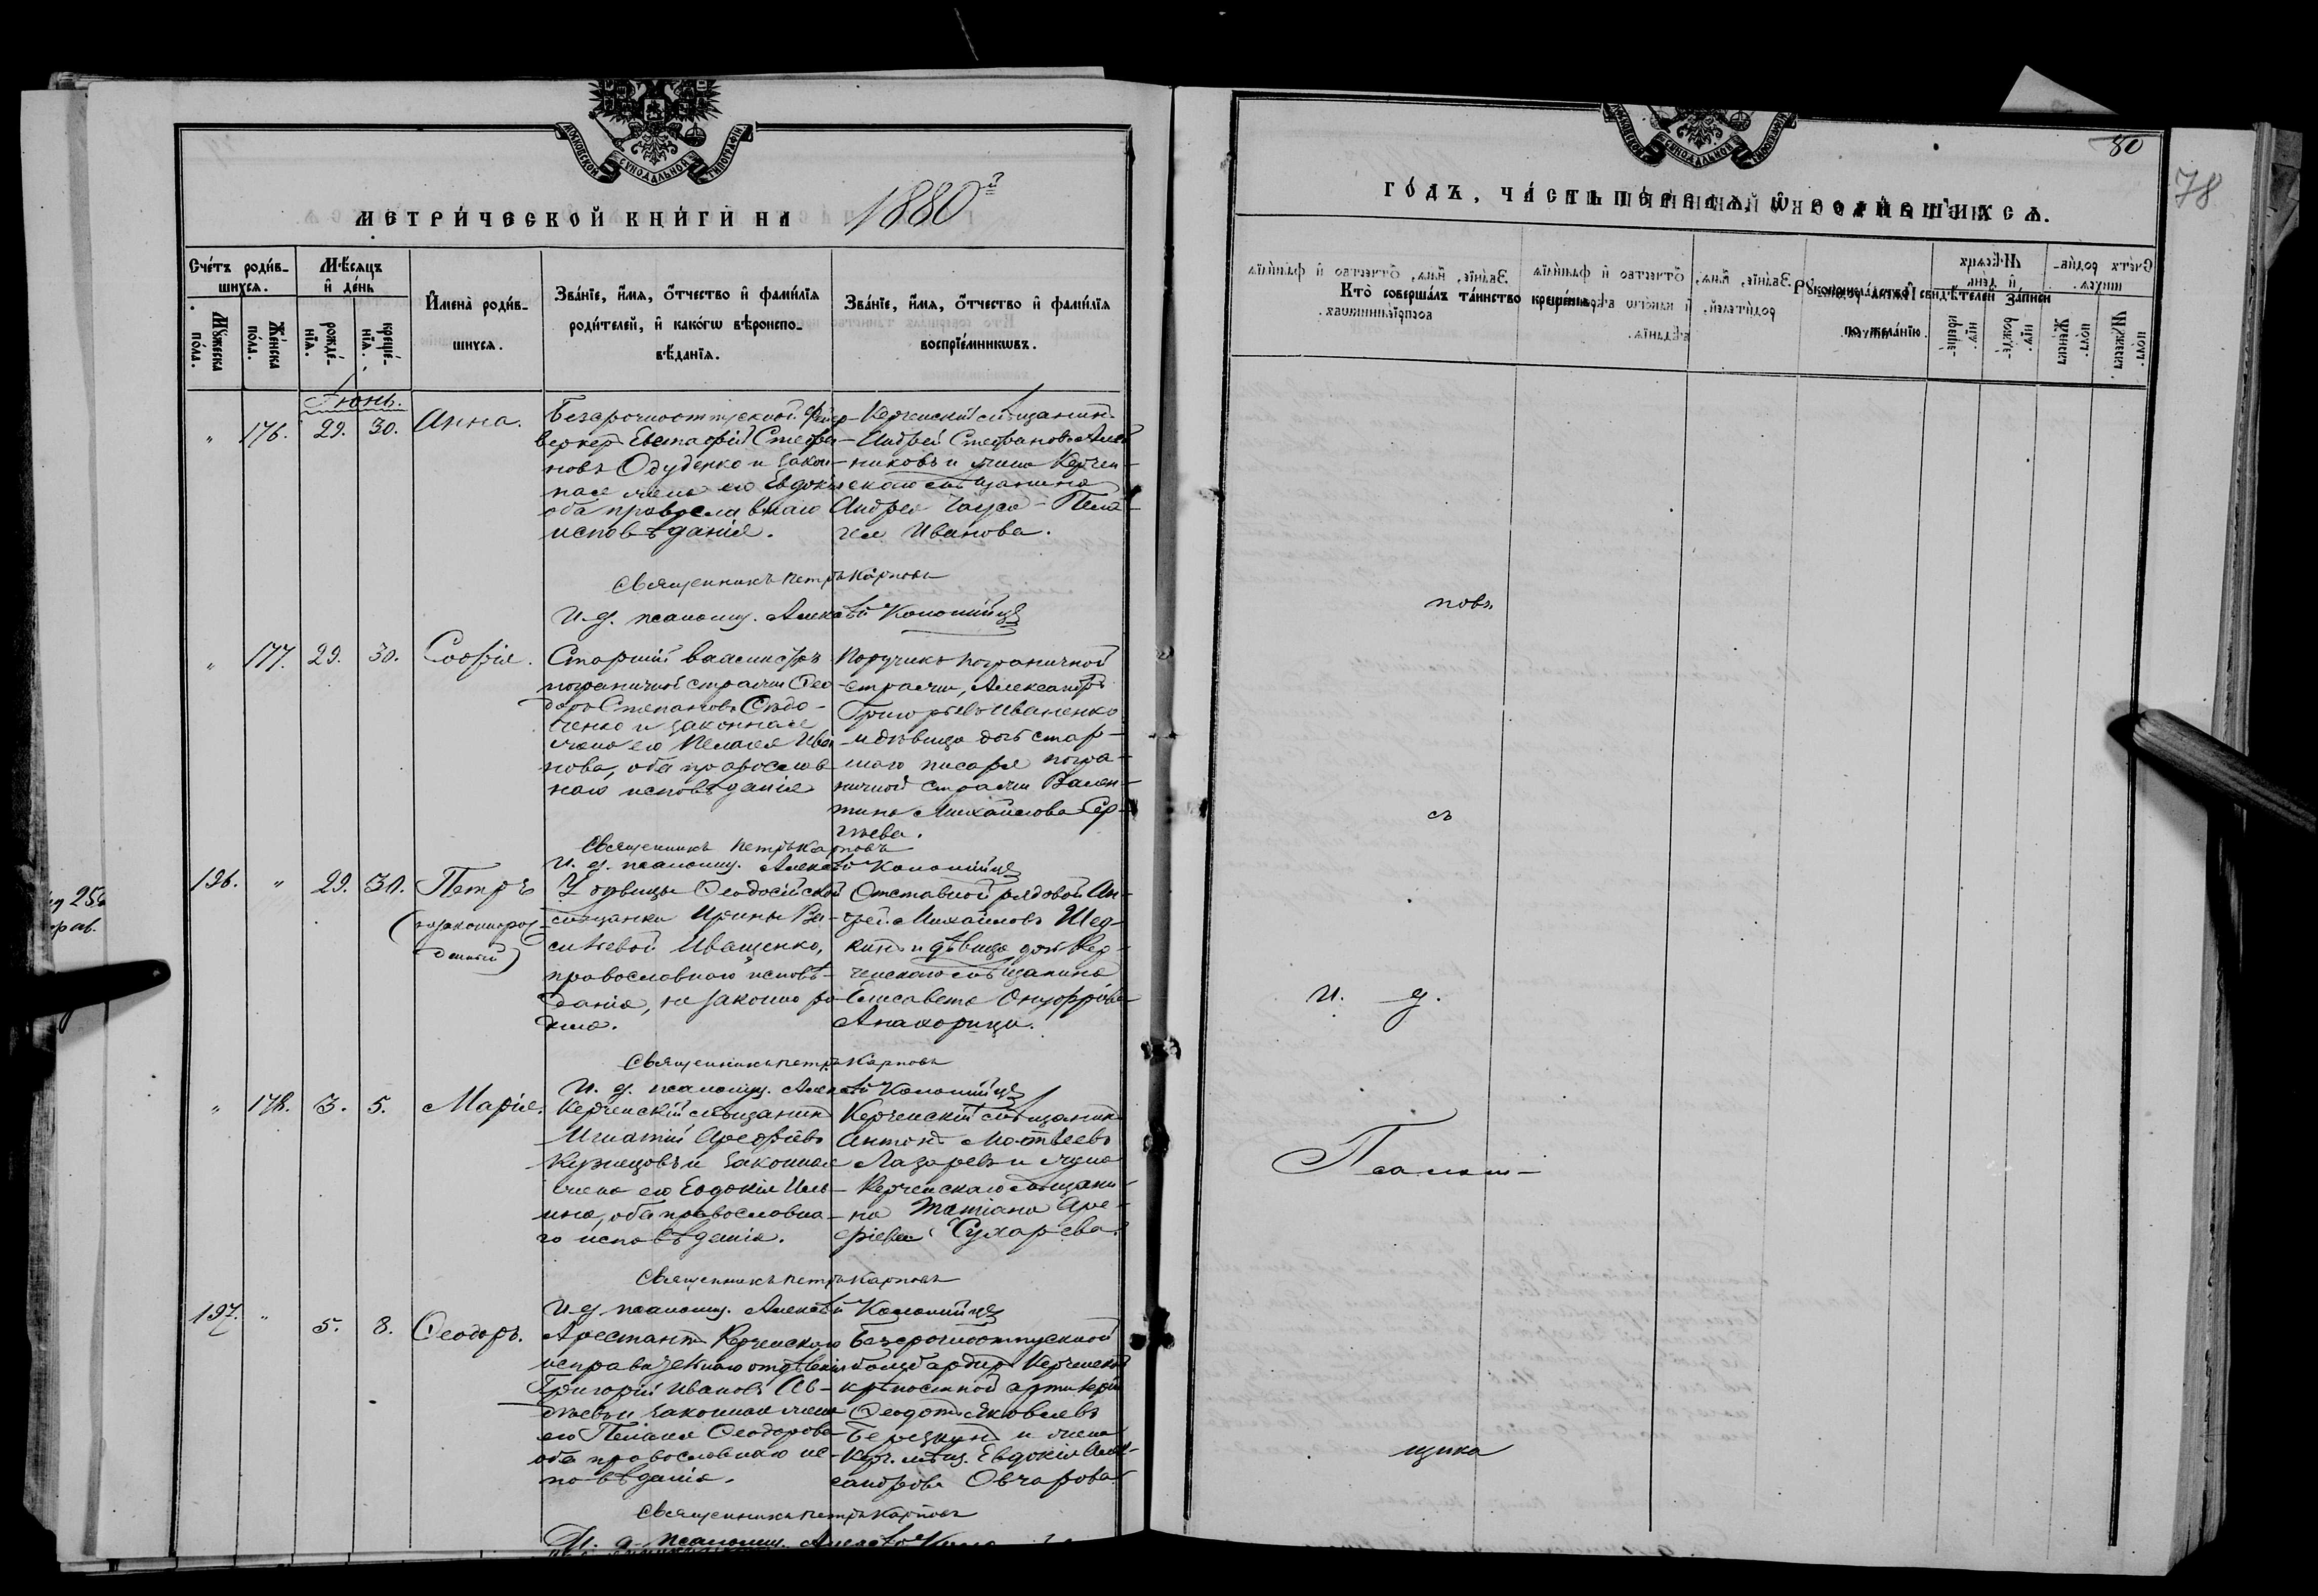 МОСКОВСКОЙ СѴНОДАЛЬНОЙ ТИПОГРАФІИ
МЕТРИ́ЧЕСКОЙ КНИ́ГИ НА 1880й
Сче́тъ роди́вшихсѧ.
Мꙋ́жеска по́ла.
Же́нска по́ла.
Мѣ́сѧцъ и҆ де́нь
рожде́нїѧ.
креще́нїѧ.
И҆мена̀ роди́вшихсѧ.
Зва́нїе, и҆́мѧ, ѻ҆́тчество и҆ фами́лїѧ
роди́телей, и҆ како́гѡ вѣроиспо-
вѣ́данїѧ.
Зва́нїе, и҆́мѧ, ѻ҆́тчество и҆ фами́лїѧ
воспрїе́мникѡвъ.
Іюнь.
" 176. 29. 30. Анна.
Безсрочноотпускной фейер-
веркеръ Евстафій Стефа-
новъ Одуденко и закон-
ная жена его Евдокія
оба православнаго
исповѣданія.
Керченскій мѣщанинъ
Андрей Стефановъ
никовъ и жена Керчен-
скаго мѣщанина
Андрея
Пела-
гея Иванова.
Священникъ Петръ Карповъ
И. д. псаломщ. Алексѣй Коломійцъ
" 177. 29. 30. Софія.
Старшій вахмистръ
пограничной стражи Ѳео-
доръ Степановъ
ченко и законная
жена его Пелагея Ива-
нова, оба православ-
наго исповѣданія
Поручикъ пограничной
стражи, Александръ
Григорьевъ Иваненко
и дѣвица дочь стар-
шаго писаря погра-
ничной стражи Вален-
тина Михайлова Сер-
гѣева.
Священникъ Петръ Карповъ
И. д. псаломщ. Алексѣй Коломійцъ
196. " 29. 30. Петръ
(незаконорож-
денный)
У дѣвицы Ѳеодосійской
мѣщанки Ирины Ва-
сильевой Иващенко,
православнаго исповѣ-
данія, незаконно ро-
жденъ.
Отставной рядовой Ан-
дрей Михайловъ Шед-
кинъ и дѣвица дочь Кер-
ченскаго мѣщанина
Елисавета Онуфріева
Священникъ Петръ Карповъ
И. д. псаломщ. Алексѣй Коломійцъ
" 178. 3. 5. Марія.
Керченскій мѣщанинъ
Игнатій Арефіевъ
Кузнецовъ и законная
жена его Евдокія Иль-
ина, оба православна-
го исповѣданія.
Керченскій мѣщанинъ
Антонъ Матвѣевъ
Лазаревъ и жена
Керченскаго мѣщани-
на Татіана Аре-
фіева Сухарева.
Священникъ Петръ Карповъ
И. д. псаломщ. Алексѣй Коломійцъ
197. " 5. 8. Ѳеодоръ.
Арестантъ Керченскаго
исправительнаго отдѣленія
Григорій Ивановъ Ав-
дѣевъ и законная жена
его Пелагея Ѳеодорова
оба православнаго ис-
повѣданія.
Безсрочноотпускной
бомбардиръ Керченской
крѣпостной артилеріи
Ѳеодотъ Яковлевъ
Березкинъ и жена
Керч. мѣщ. Евдокія Алек-
сандрова Овчарова
Священникъ Петръ Карповъ
И. д. псаломщ. Алексѣй
80
78
МОСКОВСКОЙ СѴНОДАЛЬНОЙ ТИПОГРАФІИ
ГО́ДЪ, ЧА́СТЬ ПЕ́РВАѦ, Ѡ҆ РОДИ́ВШИХСѦ.
Кто̀ соверша́лъ та́инство креще́нїѧ.
Рꙋкоприкла́дство свидѣ́телей за́писи
по жела́нїю.
повъ
съ
И. д.
Псалом-
щика